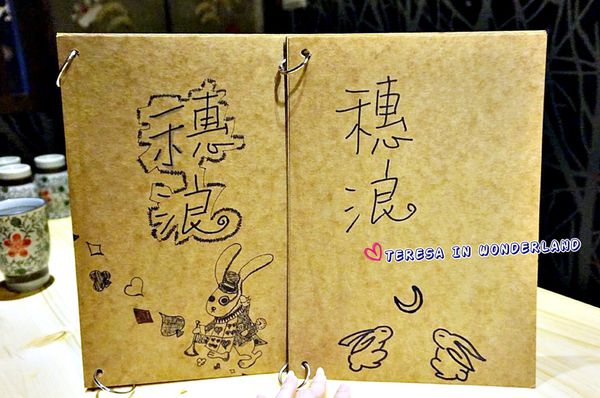 穗
浪
穗
浪
TERESA IN WONDERLAND